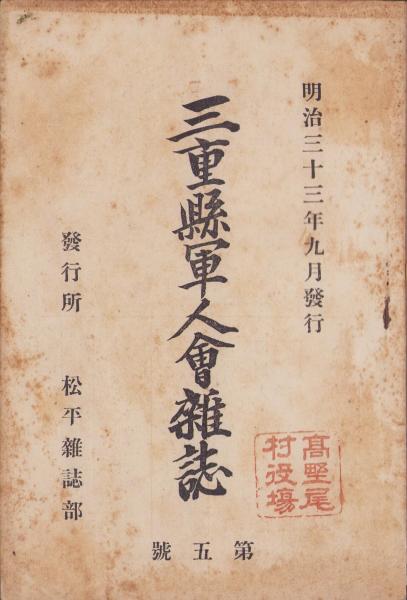 明治三十三年九月發行
三重縣軍人會雜誌
發行所 松平雜誌部
第五號
高野尾
村役場